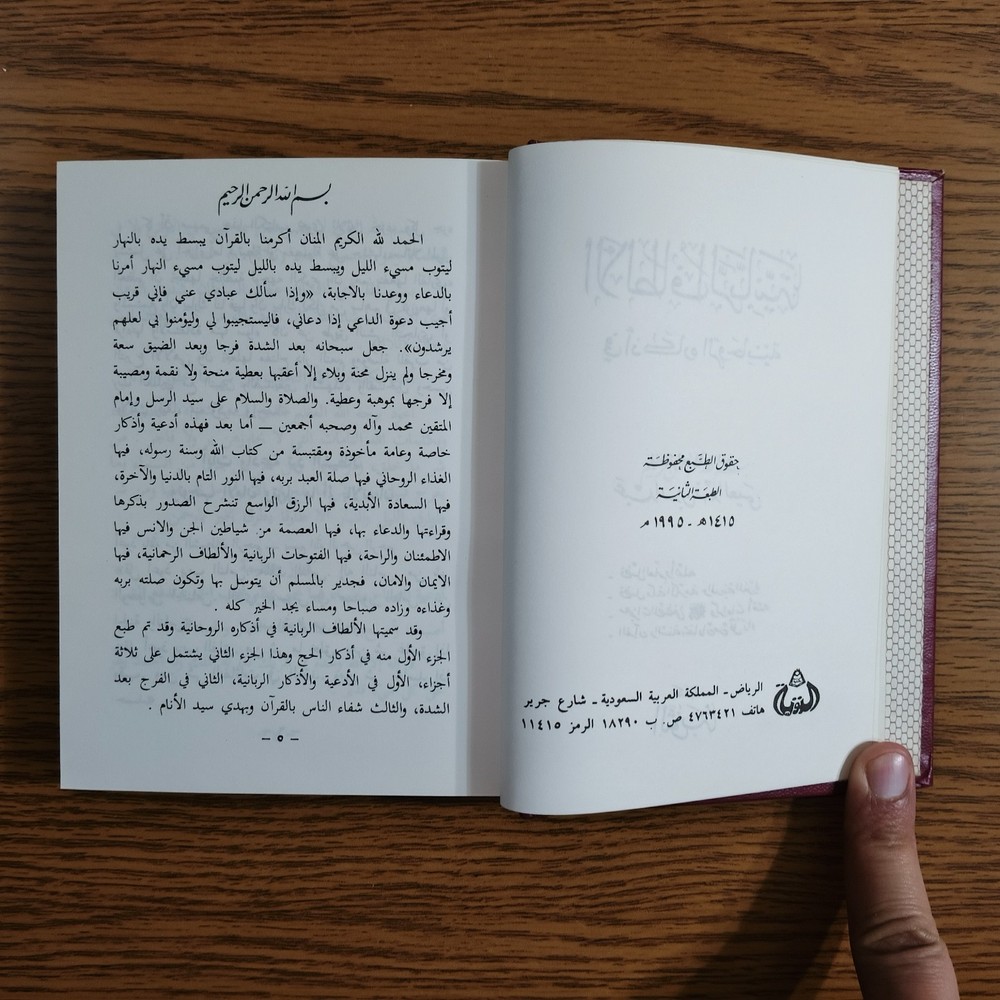 حقوق الطبع محفوظة
الطبعة الثانية
١٤١٥ هـ - ١٩٩٥ م
الرياض - المملكة العربية السعودية - شارع جرير
هاتف ٤٧٦٣٤٢١ ص. ب ١٨٢٩٠ الرمز ١١٤١٥
بسم الله الرحمن الرحيم
الحمد لله الكريم المنان أكرمنا بالقرآن يبسط يده بالنهار
ليتوب مسيء الليل ويبسط يده بالليل ليتوب مسيء النهار أمرنا
بالدعاء ووعدنا بالاجابة، «وإذا سألك عبادي عني فإني قريب
أجيب دعوة الداعي إذا دعاني، فاليستجيبوا لي وليؤمنوا بي لعلهم
يرشدون». جعل سبحانه بعد الشدة فرجا وبعد الضيق سعة
ومخرجا ولم ينزل محنة وبلاء إلا أعقبها بعطية منحة ولا نقمة ومصيبة
إلا فرجها بموهبة وعطية. والصلاة والسلام على سيد الرسل وإمام
المتقين محمد وآله وصحبه أجمعين — أما بعد فهذه أدعية وأذكار
خاصة وعامة مأخوذة ومقتبسة من كتاب الله وسنة رسوله، فيها
الغذاء الروحاني فيها صلة العبد بربه، فيها النور التام بالدنيا والآخرة،
فيها السعادة الأبدية، فيها الرزق الواسع تنشرح الصدور بذكرها
وقراءتها والدعاء بها، فيها العصمة من شياطين الجن والانس فيها
الاطمئنان والراحة، فيها الفتوحات الربانية والألطاف الرحمانية، فيها
الايمان والامان، فجدير بالمسلم أن يتوسل بها وتكون صلته بربه
وغذاءه وزاده صباحا ومساء يجد الخير كله .
وقد سميتها الألطاف الربانية في أذكاره الروحانية وقد تم طبع
الجزء الأول منه في أذكار الحج وهذا الجزء الثاني يشتمل على ثلاثة
أجزاء، الأول في الأدعية والأذكار الربانية، الثاني في الفرج بعد
الشدة، والثالث شفاء الناس بالقرآن وبهدي سيد الأنام .
– ٥ –